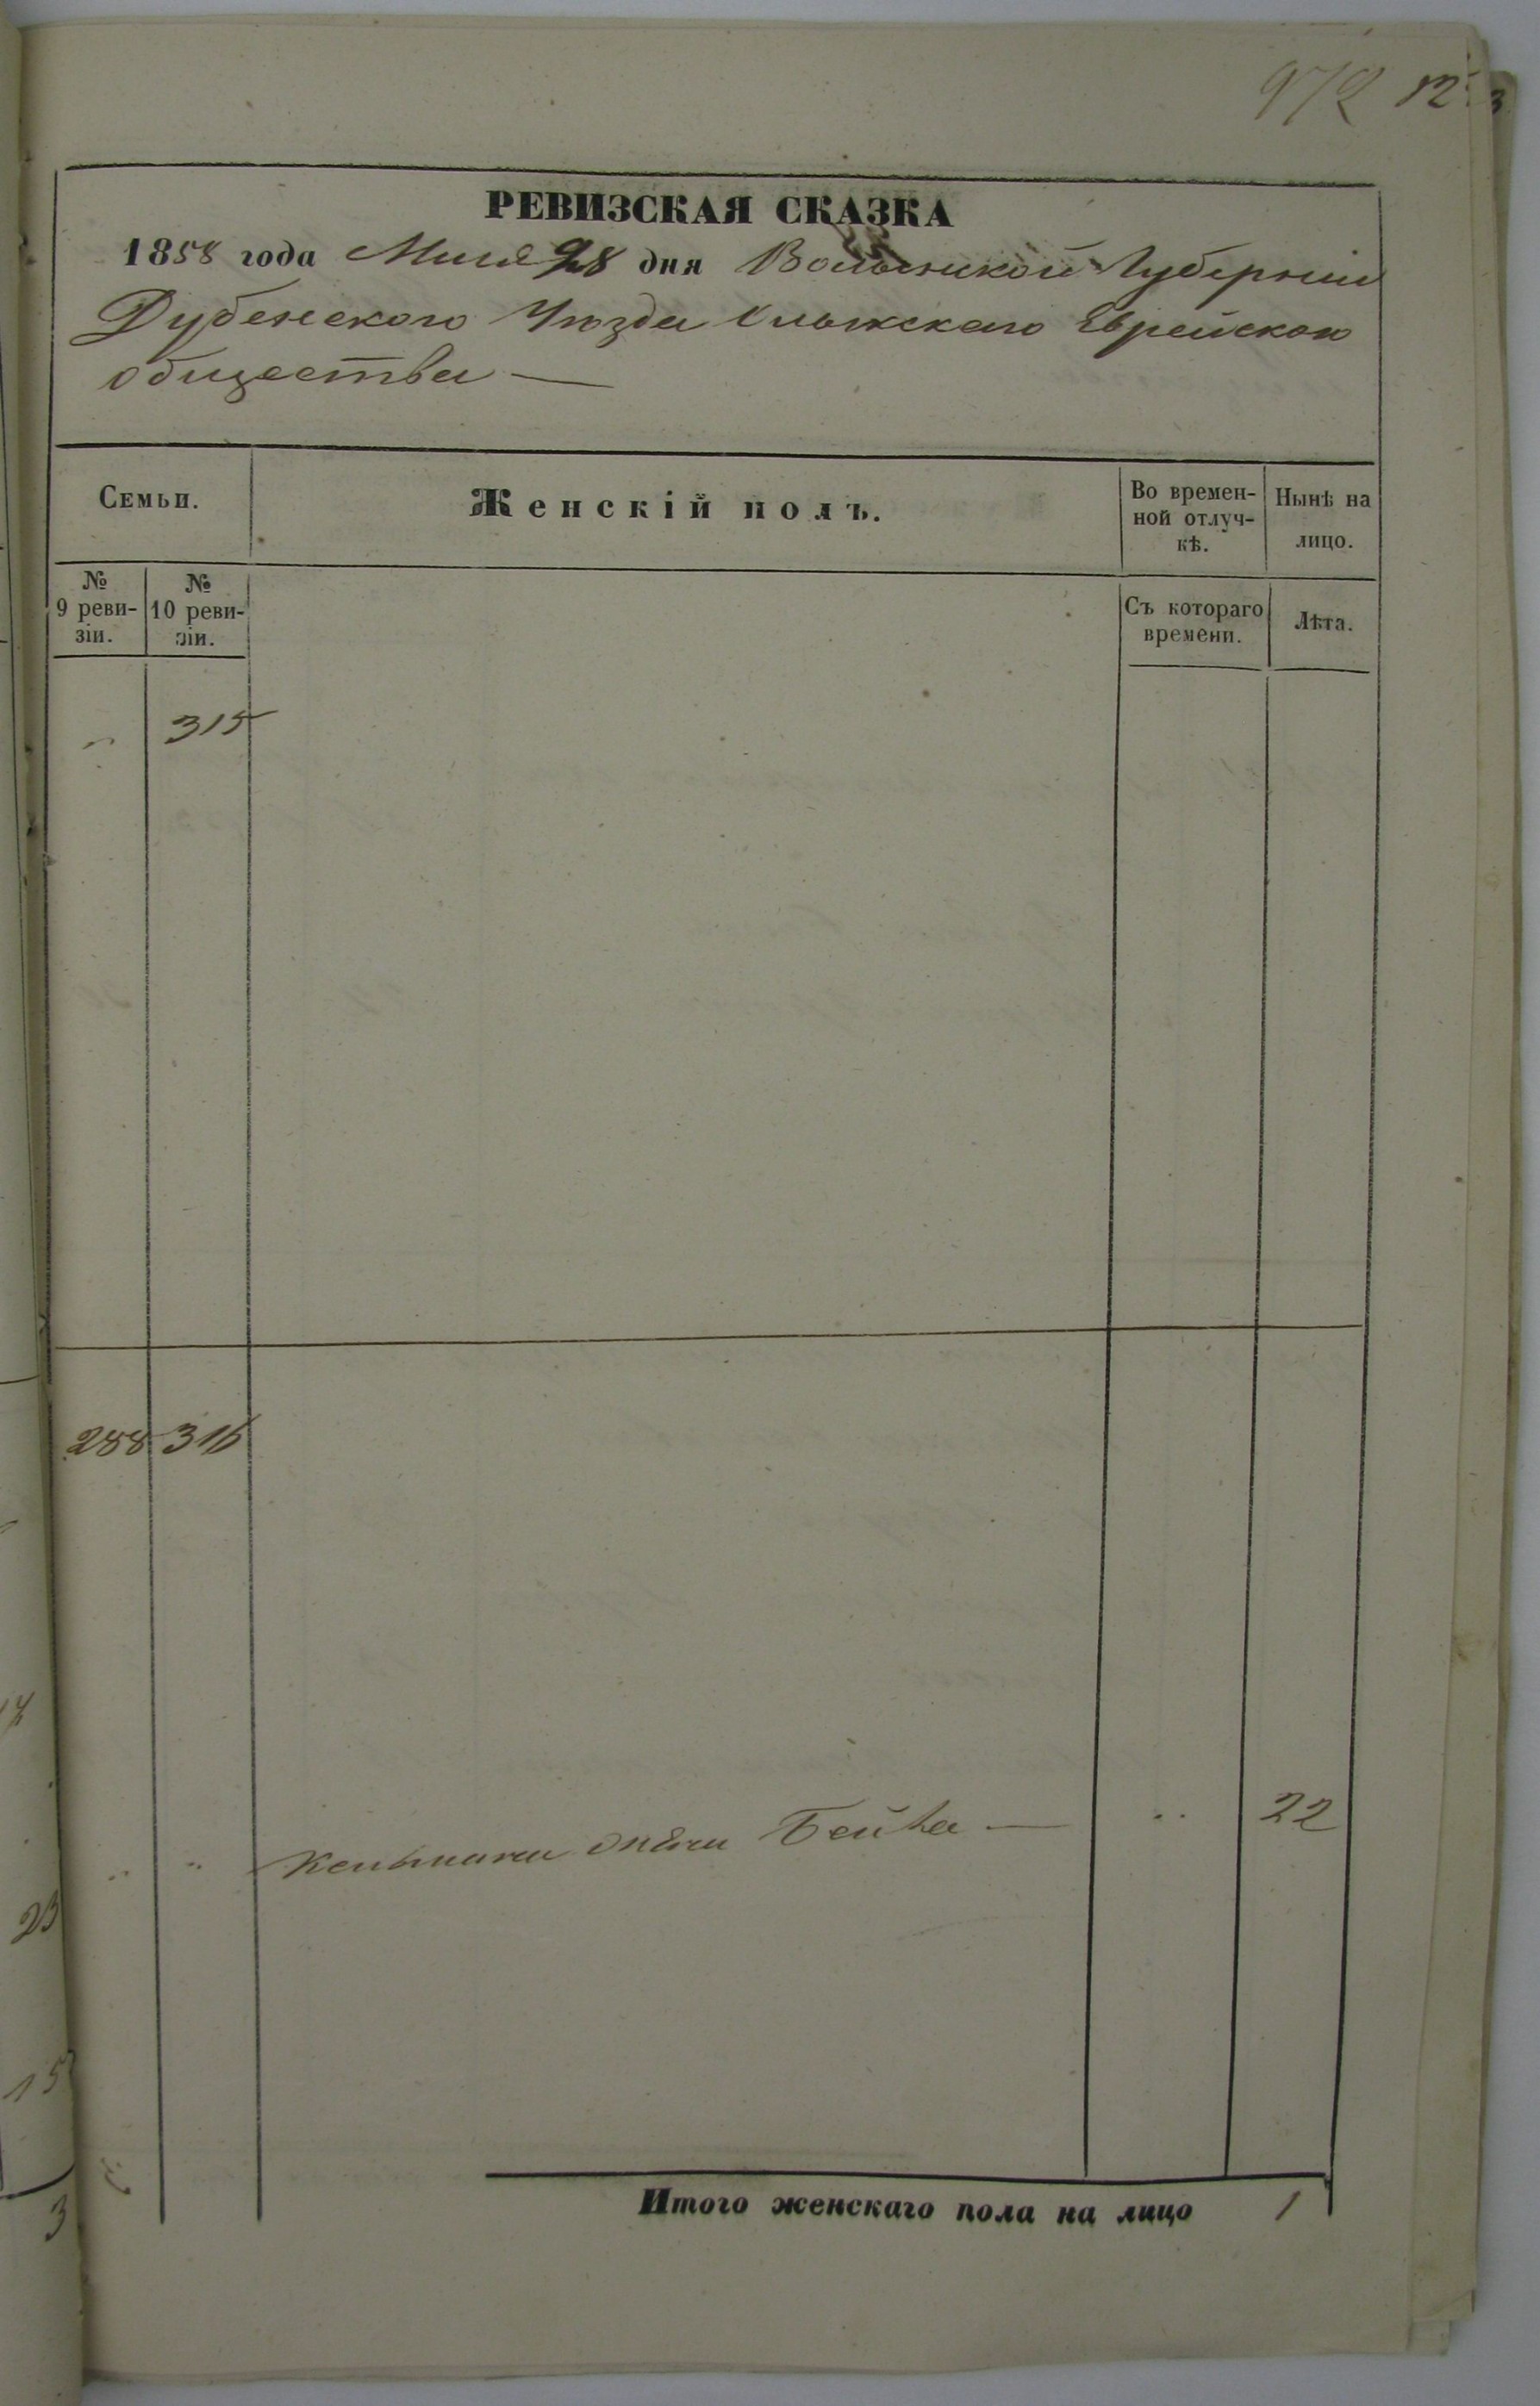 972 12
РЕВИЗСКАЯ СКАЗКА
1858 года Мая 28 дня Волынской Губернии
Дубенского Уѣзда Олыкскаго Еврейскаго
общества —
Семьи.
Женскій полъ.
Во времен-
ной отлуч-
кѣ.
Нынѣ на
лицо.
№
9 реви-
зіи.
№
10 реви-
зіи.
Съ котораго
времени.
Лѣта.
315
288 316
жена Бейла — 22
Итого женскаго пола на лицо 1
23
15
3